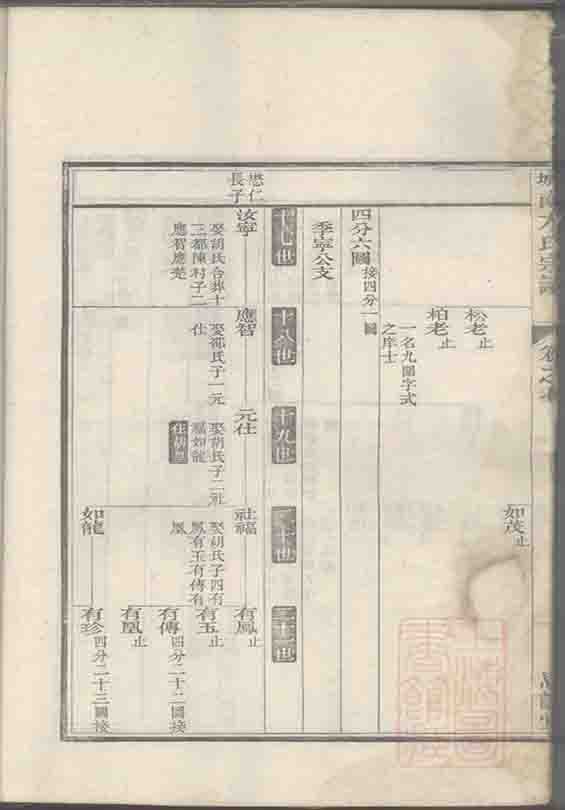 如茂止
松老止
柏老止
一名九開字式
之庠士
四分六圖接四分一圖
季寧公支
十七世
十八世
十九世
二十世
二十一世
懋仁
長子
汝寧
娶胡氏合葬十
三都陳村子二
應智應楚
應智
娶邵氏子一元
仕
元仕
娶胡氏子二社
福如龍
社福
娶胡氏子四有
鳳有玉有傳有
凰
有鳳止
有玉止
有傳四分二十二圖接
有凰止
如龍
有珍四分二十三圖接